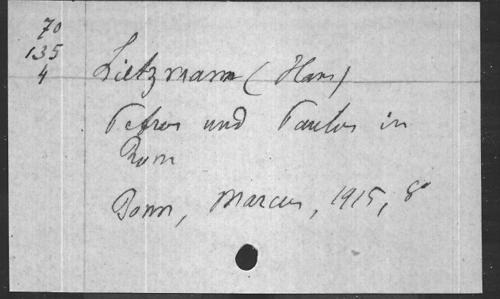 70
135
4
Lietzmann (Hans)
Petrus und Paulus in
Rom
Bonn, Marcus, 1915, 8°